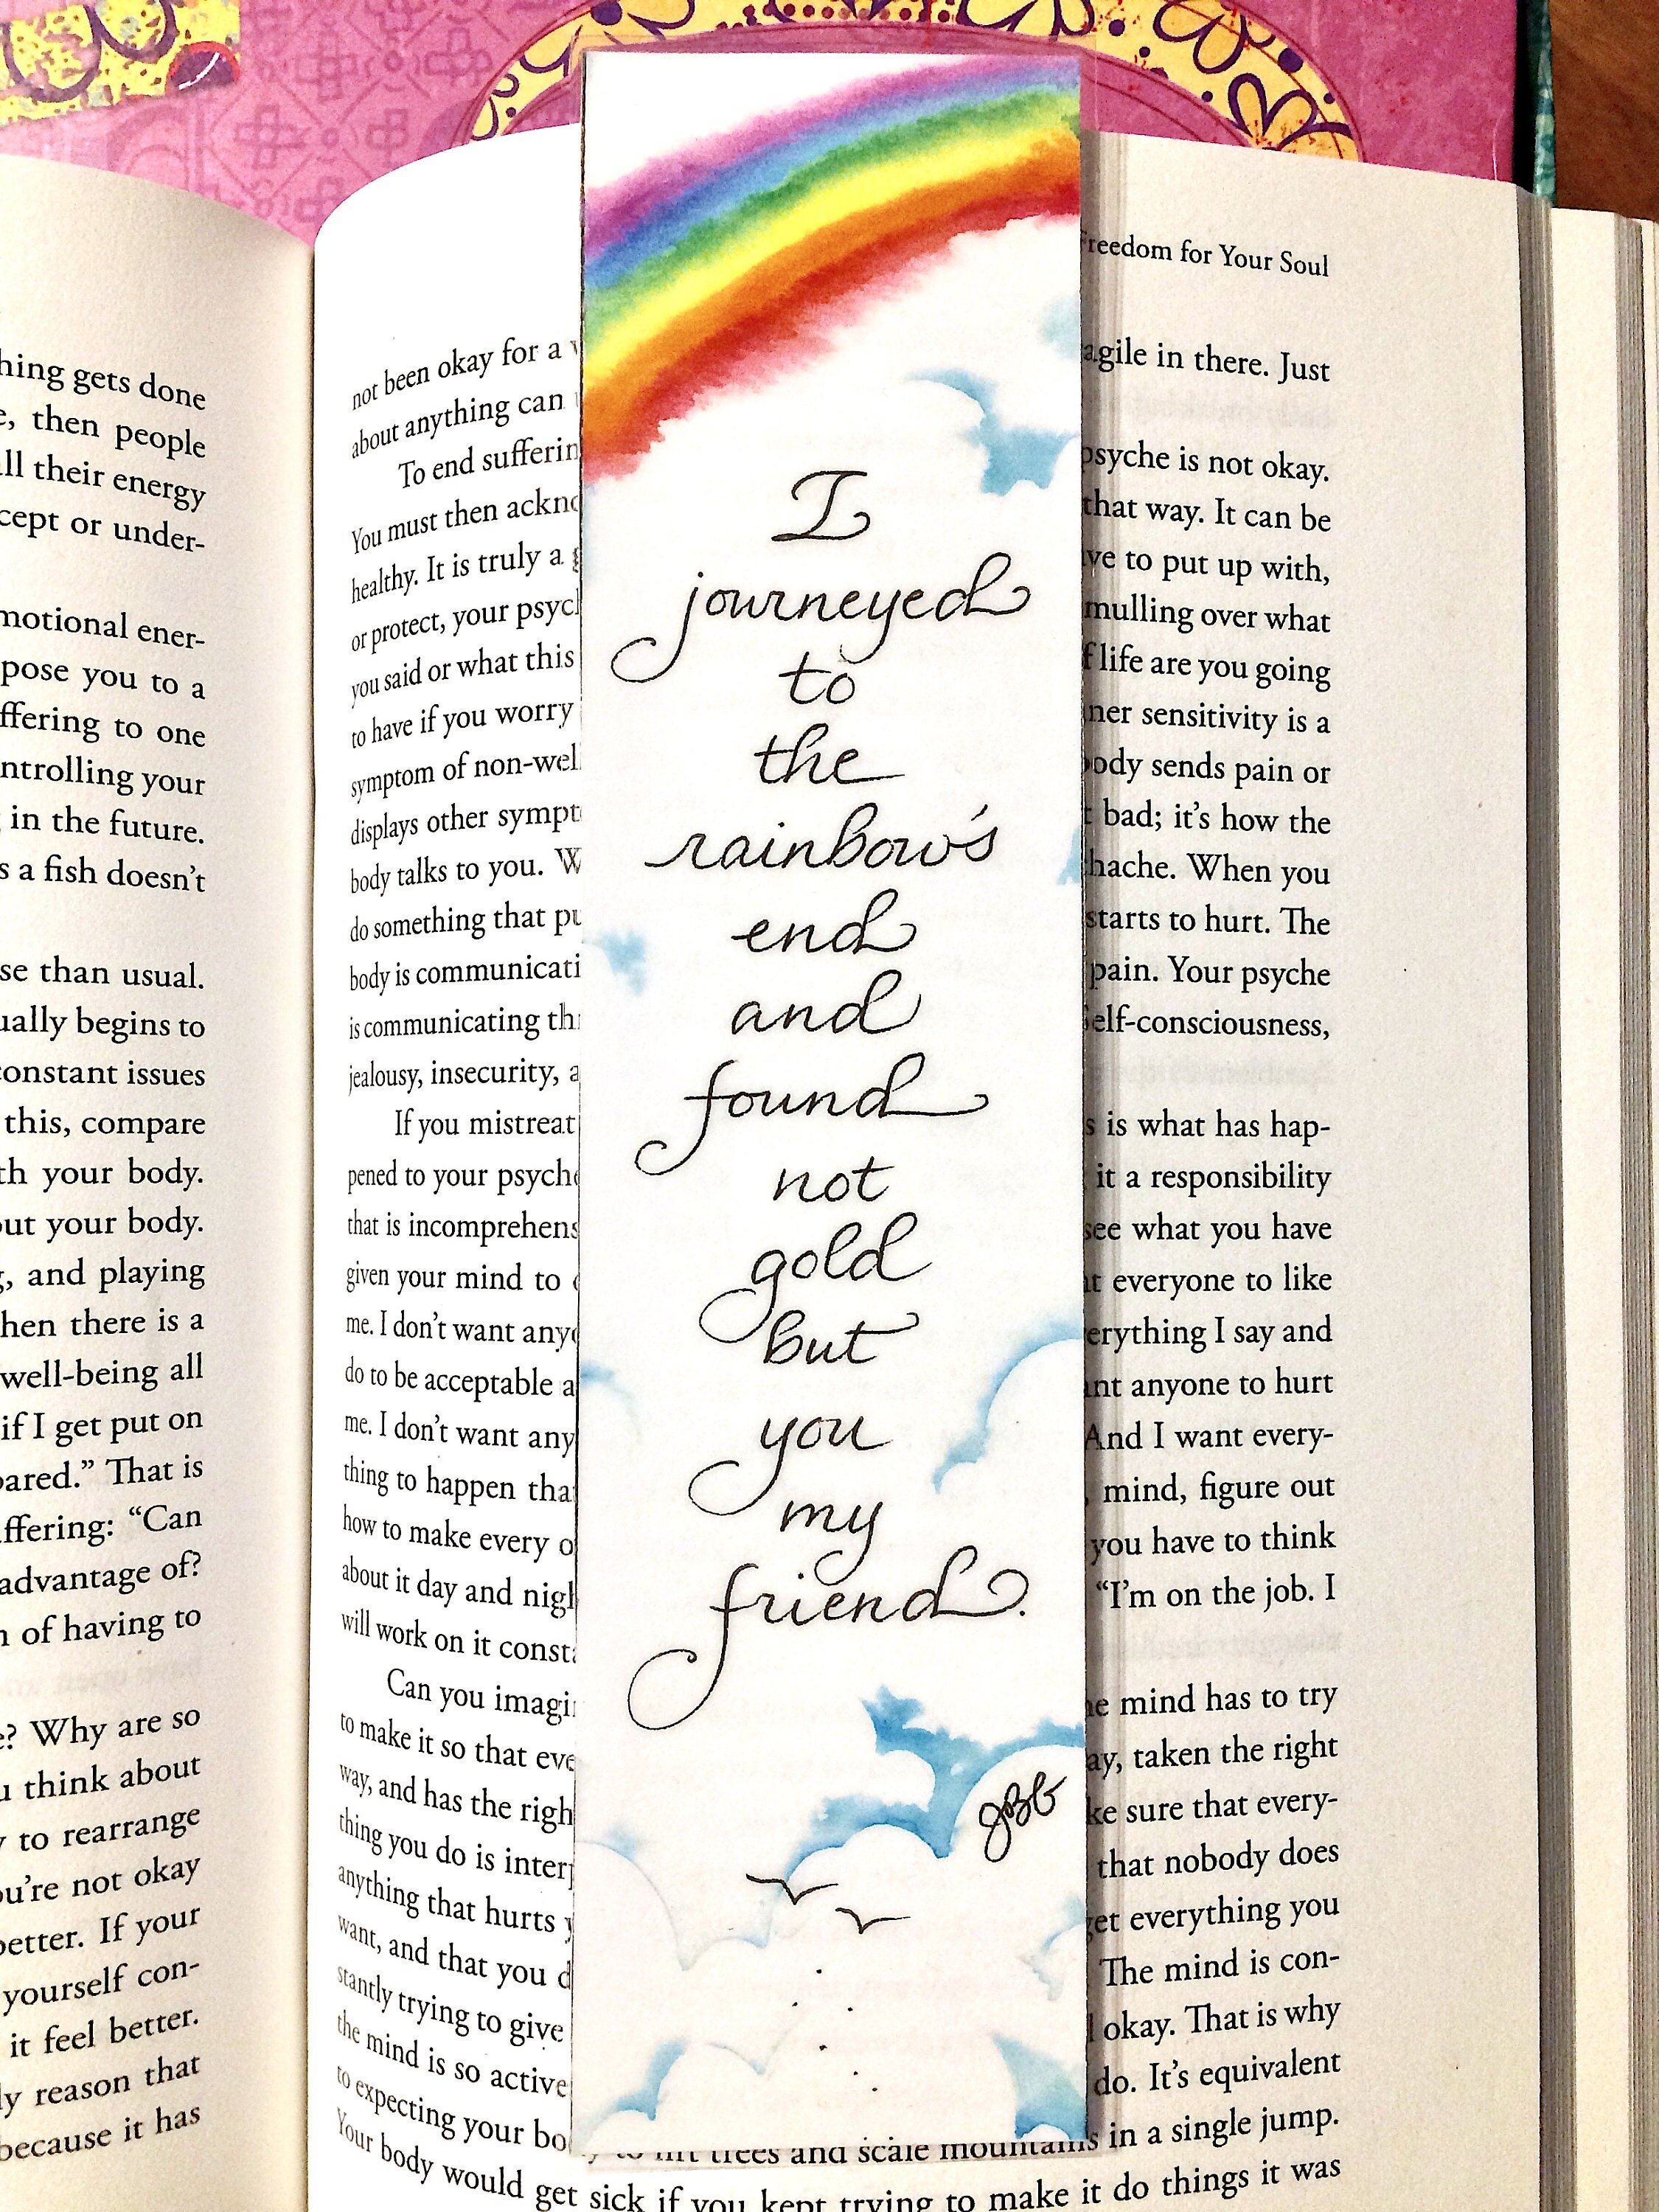 hing gets done
then people
ll their energy
cept or under-
motional ener-
pose you to a
ffering to one
ntrolling your
in the future.
s a fish doesn't
se than usual.
ually begins to
constant issues
this, compare
th your body.
out your body.
and playing
hen there is a
well-being all
if I get put on
pared." That is
ffering: "Can
advantage of?
of having to
Why are so
think about
to rearrange
ou're not okay
better. If your
yourself con-
it feel better.
reason that
because it has
Freedom for Your Soul
not been okay for a
agile in there. Just
about anything can
To end sufferin
psyche is not okay.
You must then ackno
that way. It can be
healthy. It is truly a
ve to put up with,
or protect, your psych
mulling over what
you said or what this
f life are you going
to have if you worry
ner sensitivity is a
symptom of non-wel
body sends pain or
displays other sympt
bad; it's how the
body talks to you. W
hache. When you
do something that pu
starts to hurt. The
body is communicati
pain. Your psyche
is communicating th
Self-consciousness,
jealousy, insecurity, a
If you mistreat
s is what has hap-
pened to your psyche
it a responsibility
that is incomprehens
see what you have
given your mind to
t everyone to like
me. I don't want anyo
erything I say and
do to be acceptable a
nt anyone to hurt
me. I don't want any
And I want every-
thing to happen tha
mind, figure out
how to make every o
you have to think
about it day and nigh
"I'm on the job. I
will work on it consta
Can you imagi
he mind has to try
to make it so that eve
ay, taken the right
way, and has the righ
ke sure that every-
thing you do is inter
that nobody does
anything that hurts
get everything you
want, and that you d
The mind is con-
stantly trying to give
okay. That is why
the mind is so active
do. It's equivalent
to expecting your bo
to lift trees and scale mountains in a single jump.
Your body would get sick if you kept trying to make it do things it was
I
journeyed
to
the
rainbow's
end
and
found
not
gold
but
you
my
friend.
JBG